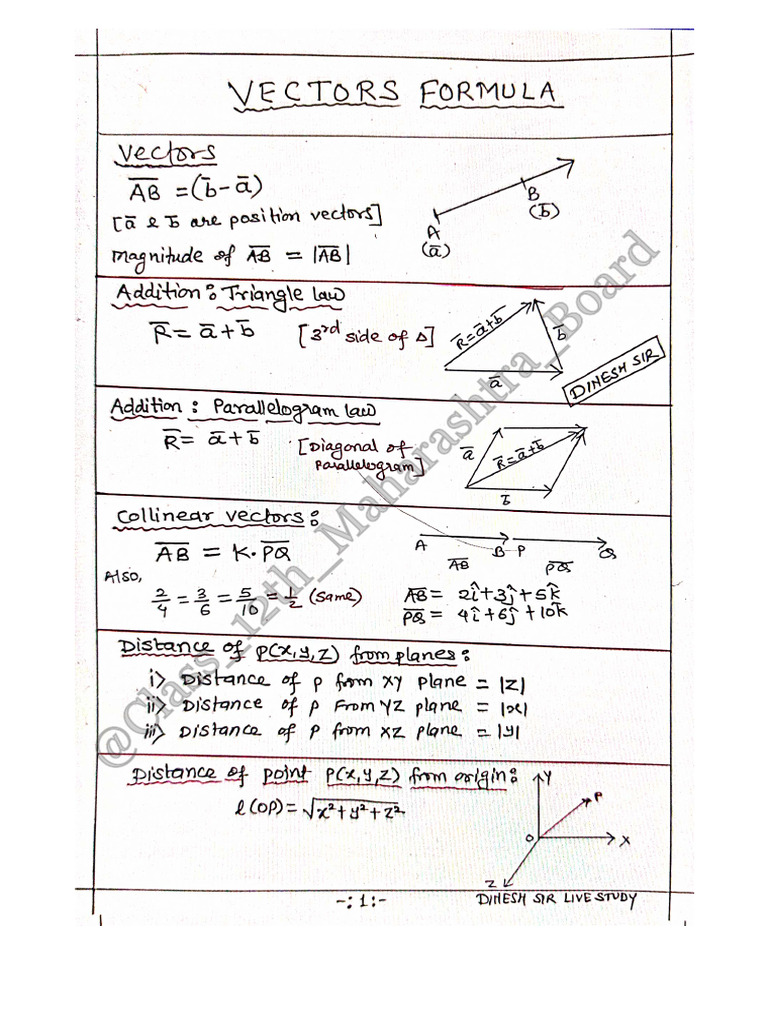 VECTORS FORMULA
Vectors
A̅B̅ = (b̅ - a̅)
[a̅ & b̅ are position vectors]
magnitude of A̅B̅ = |A̅B̅|
A
(a̅)
B
(b̅)
Addition: Triangle law
R̅ = a̅ + b̅ [3rd side of Δ]
R̅ = a̅ + b̅
b̅
a̅
DINESH SIR
Addition: Parallelogram law
R̅ = a̅ + b̅ [Diagonal of
Parallelogram]
a̅
R̅ = a̅ + b̅
b̅
Collinear vectors:
A̅B̅ = K·P̅Q̅
A B P Q
A̅B̅ P̅Q̅
Also,
2/4 = 3/6 = 5/10 = 1/2 (same)
A̅B̅ = 2î+3ĵ+5k̂
P̅Q̅ = 4î+6ĵ+10k̂
Distance of P(x,y,z) from planes:
i> Distance of P from XY plane = |z|
ii> Distance of P From YZ plane = |x|
iii> Distance of P from XZ plane = |y|
Distance of point P(x,y,z) from origin:
l(OP) = √x²+y²+z²
Y
P
O
X
Z
-:1:-
DINESH SIR LIVE STUDY
@Class_12th_Maharashtra_Board